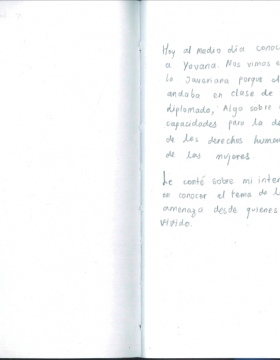 Hoy al medio día conoc
a Yovana. Nos vimos e
la Javeriana porque el
andaba en clase de
diplomado, Algo sobre
capacidades para la de
de los derechos human
de las mujeres.
Le conté sobre mi inter
en conocer el tema de l
amenaza desde quienes
vivido.